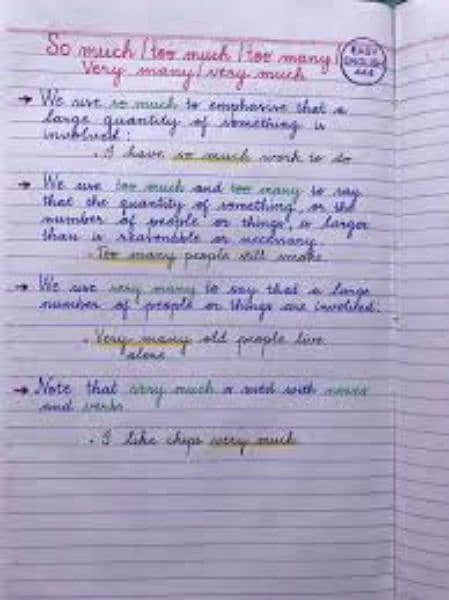 So much / too much / too many /
Very many / very much
EASY
ENGLISH
→ We use so much to emphasise that a
large quantity of something is
involved:
• I have so much work to do
→ We use too much and too many to say
that the quantity of something, or the
number of people or things, is larger
than is reasonable or necessary.
• Too many people still smoke
→ We use very many to say that a large
number of people or things are involved:
• Very many old people live
alone
→ Note that very much is used with nouns
and verbs
• I like chips very much